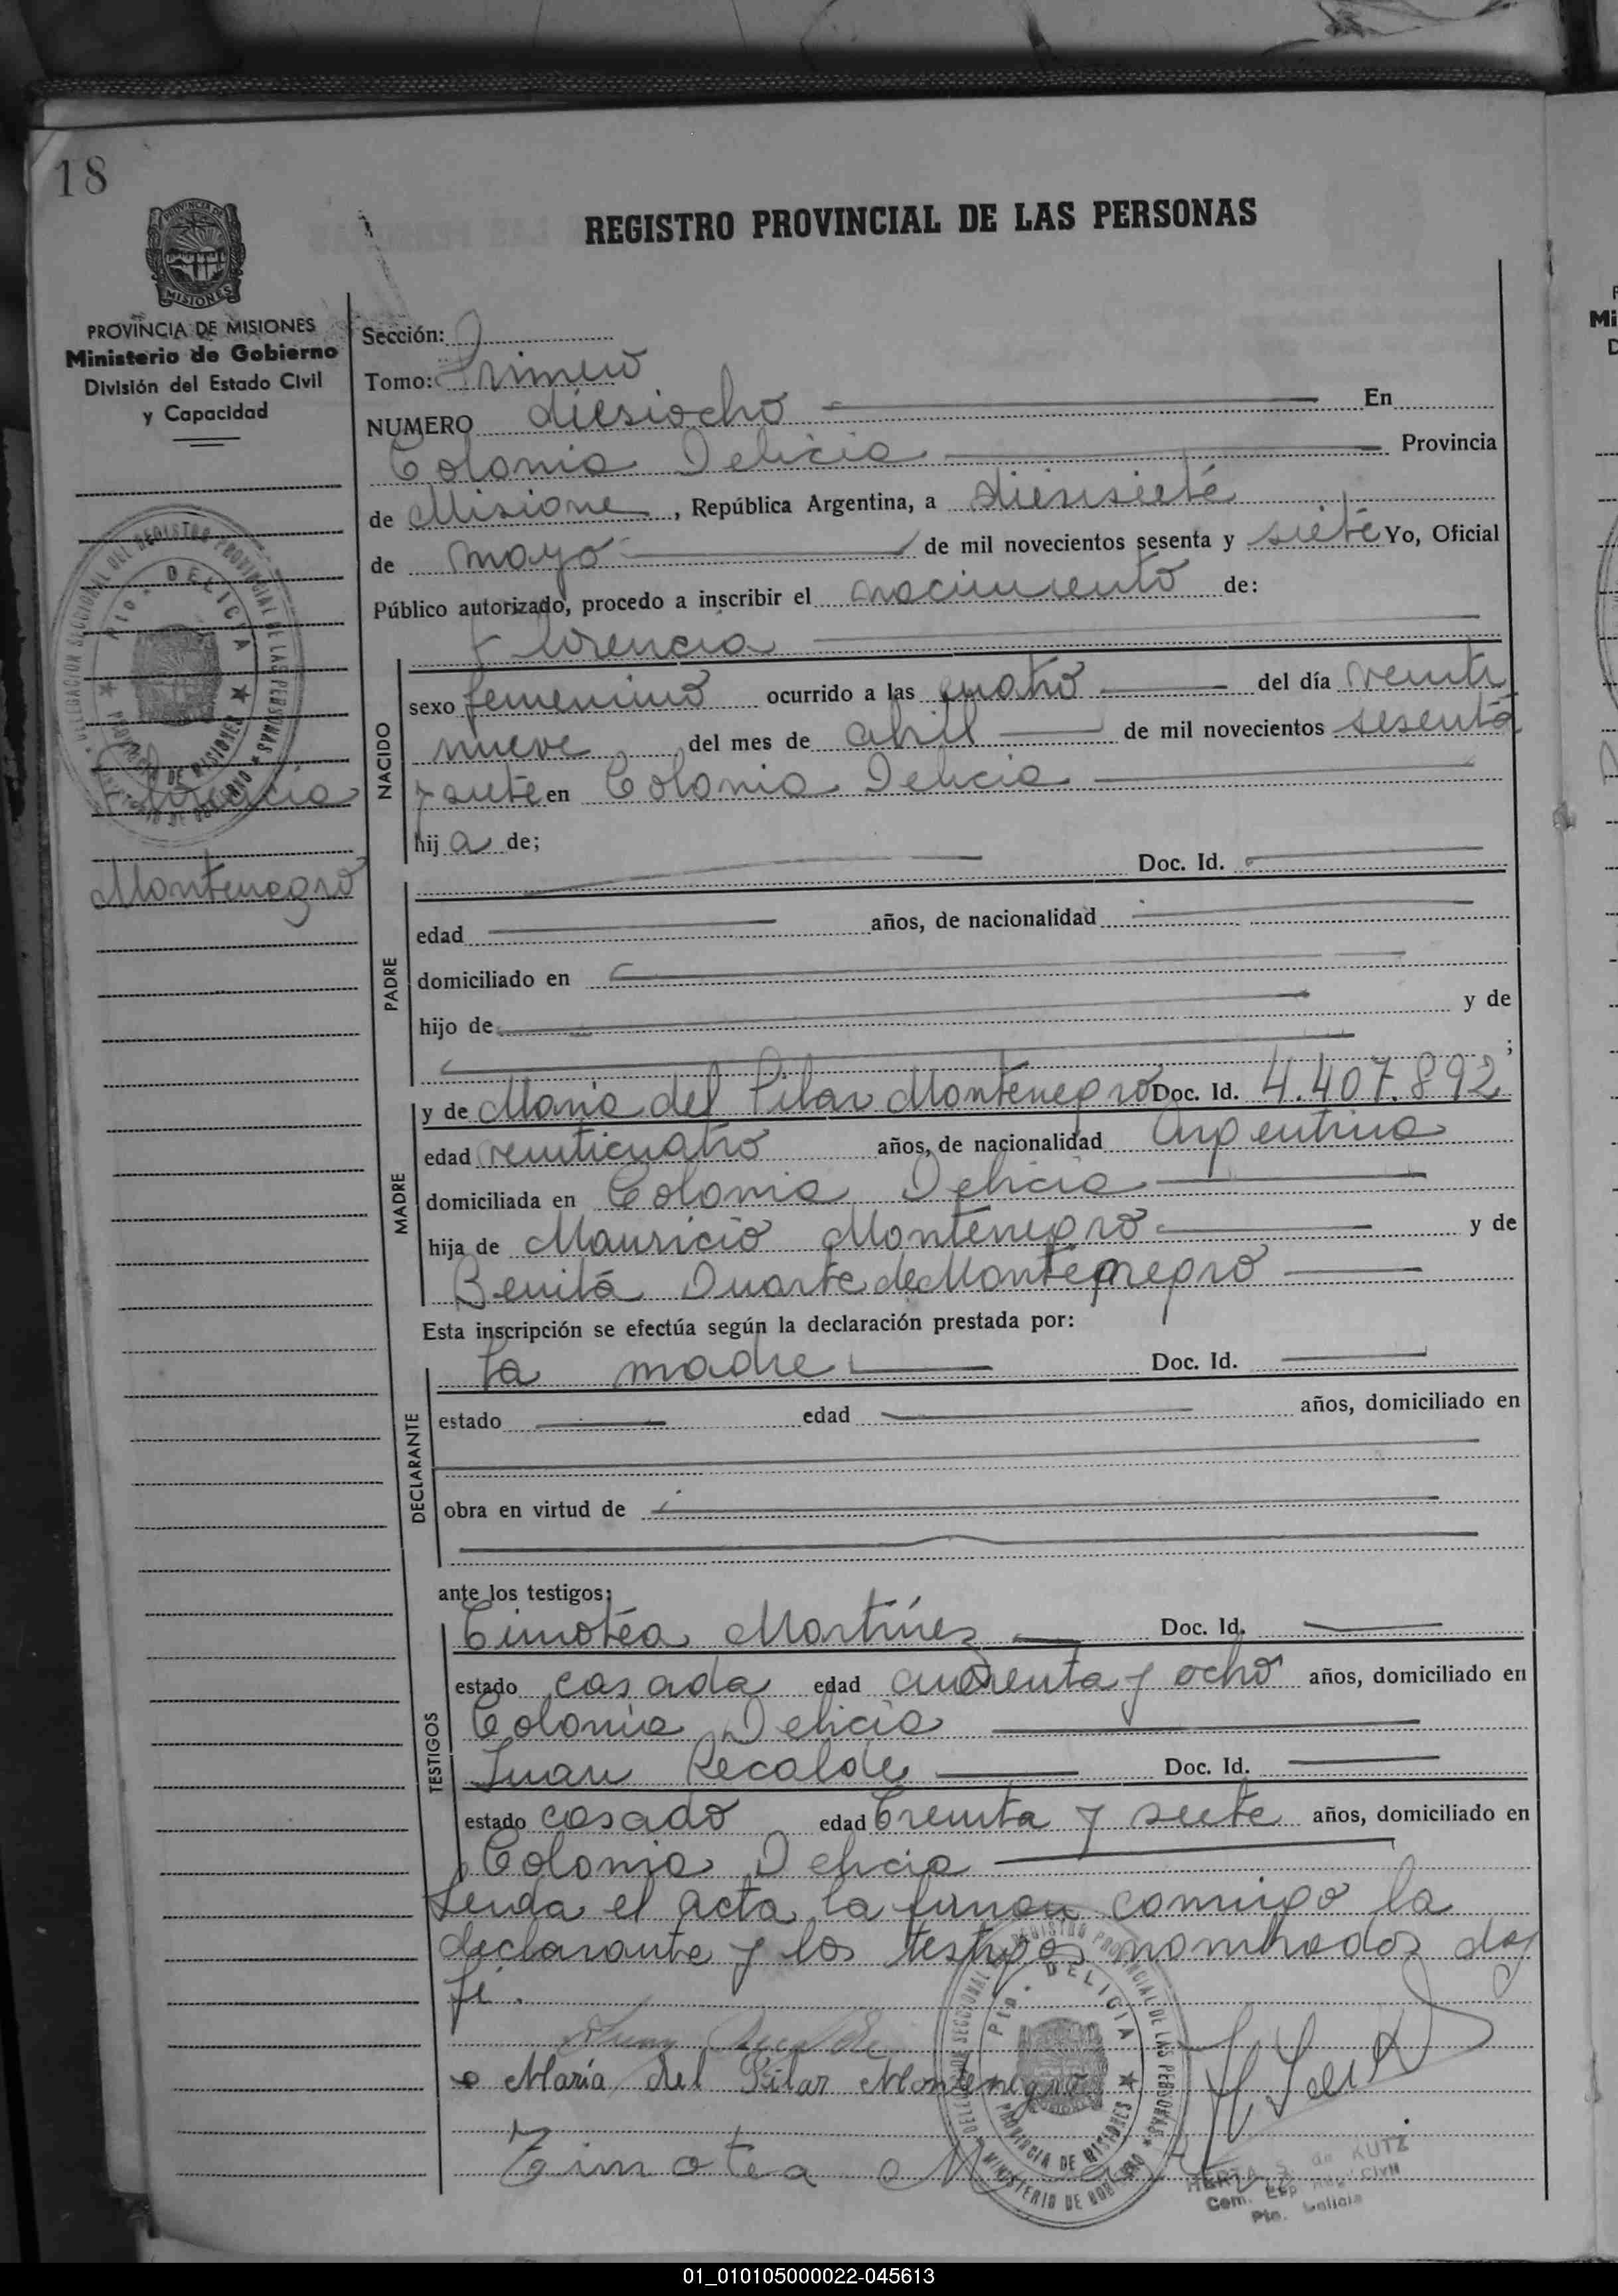 18
REGISTRO PROVINCIAL DE LAS PERSONAS
PROVINCIA DE MISIONES
MISIONES
PROVINCIA DE MISIONES
Ministerio de Gobierno
División del Estado Civil
y Capacidad
Sección:
Tomo: Primero
NUMERO diesiocho En
Colonia Delicia Provincia
de Misione, República Argentina, a diesisiete
de mayo de mil novecientos sesenta y siete Yo, Oficial
Público autorizado, procedo a inscribir el nacimiento de:
Florencia
NACIDO
sexo femenino ocurrido a las cuatro del día veinti
nueve del mes de abril de mil novecientos sesenta
y siete en Colonia Delicia
hija de;
Florencia
Montenegro
DELEGACION SECCIONAL DEL REGISTRO PROVINCIAL DE LAS PERSONAS
Pto. DELICIA
PROVINCIA DE MISIONES
MINISTERIO DE GOBIERNO
PADRE
Doc. Id.
edad años, de nacionalidad
domiciliado en
hijo de y de
;
MADRE
y de María del Pilar Montenegro Doc. Id. 4.407.892
edad veinticuatro años, de nacionalidad Argentina
domiciliada en Colonia Delicia
hija de Mauricio Montenegro y de
Benita Duarte de Montenegro
Esta inscripción se efectúa según la declaración prestada por:
DECLARANTE
la madre Doc. Id.
estado edad años, domiciliado en
obra en virtud de
ante los testigos:
TESTIGOS
Timotéa Martínez Doc. Id.
estado casada edad cuarenta y ocho años, domiciliado en
Colonia Delicia
Juan Recalde Doc. Id.
estado casado edad treinta y siete años, domiciliado en
Colonia Delicia
Leida el acta la firman conmigo la
declarante y los testigos nombrados doy
fé.
Juan Recalde
María del Pilar Montenegro
Timotea
DELEGACION SECCIONAL DEL REGISTRO PROVINCIAL DE LAS PERSONAS
Pto. DELICIA
PROVINCIA DE MISIONES
MINISTERIO DE GOBIERNO
HERTA S. de KUTZ
Civil
Pto. Delicia
01_010105000022-045613